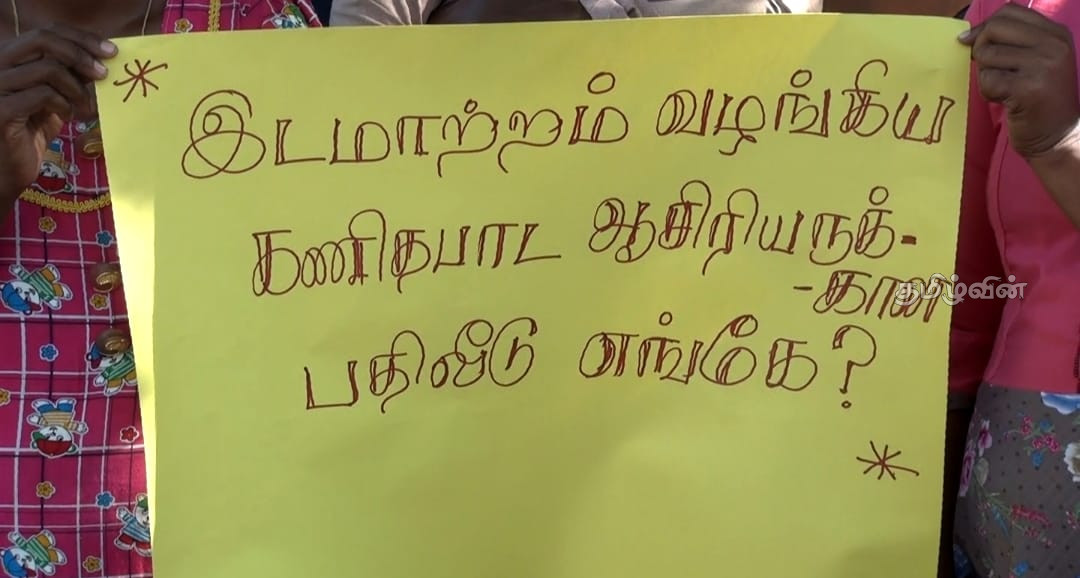 இடமாற்றம் வழங்கிய
கணிதபாட ஆசிரியருக்-
-கான
தமிழ்வின்
பதிலீடு எங்கே?